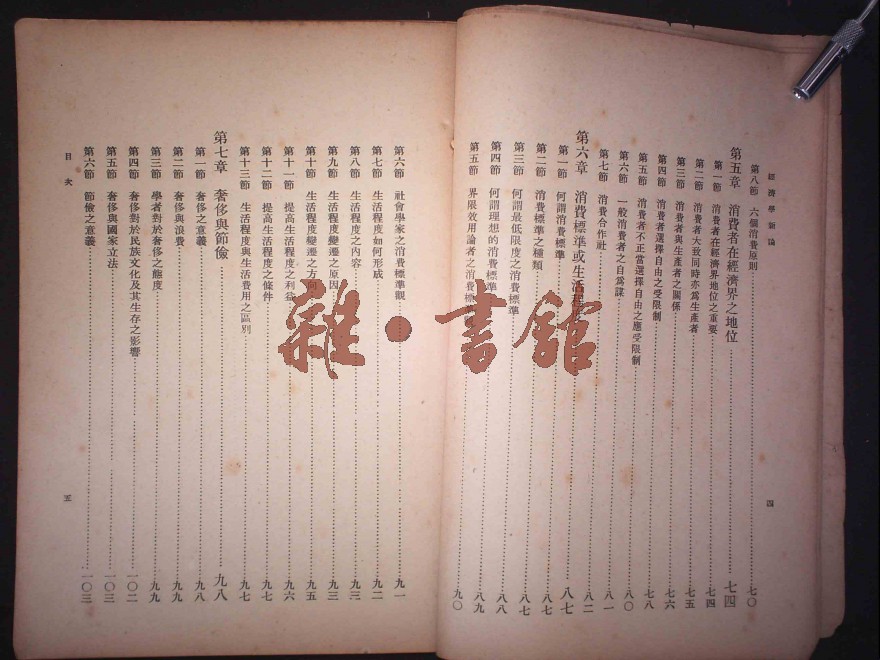 經濟學新論
第八節 六個消費原則 七〇
第五章 消費者在經濟界之地位 七四
第一節 消費者在經濟界地位之重要 七四
第二節 消費者大致同時亦為生產者 七五
第三節 消費者與生產者之關係 七六
第四節 消費者選擇自由之受限制 七八
第五節 消費者不正當選擇自由之應受限制 八〇
第六節 一般消費者之自為謀 八一
第七節 消費合作社 八二
第六章 消費標準或生活程度 八七
第一節 何謂消費標準 八七
第二節 消費標準之種類 八七
第三節 何謂最低限度之消費標準 八八
第四節 何謂理想的消費標準 八九
第五節 界限效用論者之消費標準觀 九〇
四
第六節 社會學家之消費標準觀 九一
第七節 生活程度如何形成 九二
第八節 生活程度之內容 九三
第九節 生活程度變遷之原因 九三
第十節 生活程度變遷之方向 九五
第十一節 提高生活程度之利益 九六
第十二節 提高生活程度之條件 九七
第十三節 生活程度與生活費用之區別 九七
第七章 奢侈與節儉 九八
第一節 奢侈之意義 九八
第二節 奢侈與浪費 九九
第三節 學者對於奢侈之態度 九九
第四節 奢侈對於民族文化及其生存之影響 一〇二
第五節 奢侈與國家立法 一〇三
第六節 節儉之意義 一〇三
目次
五
雜·書館